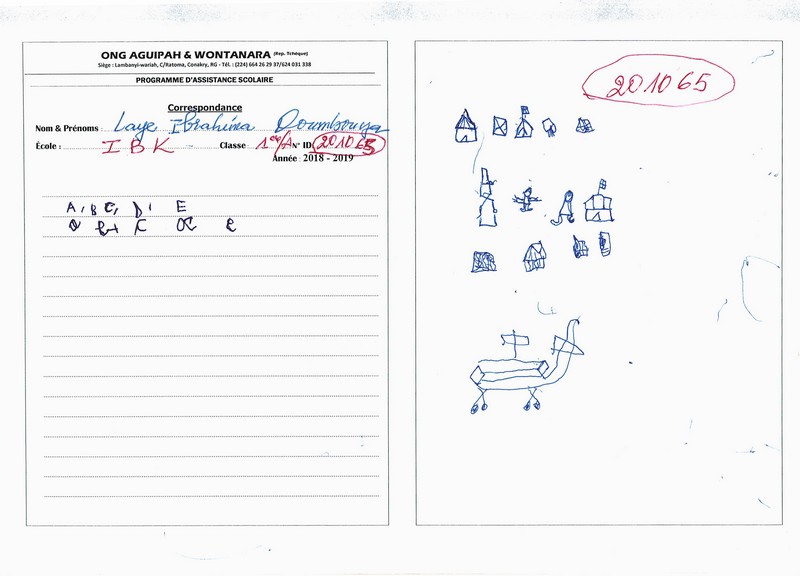 ONG AGUIPAH & WONTANARA (Rep. Tchèque)
Siège : Lambanyi-wariah, C/Ratoma, Conakry, RG - Tél. : (224) 664 26 29 37/624 031 338
PROGRAMME D'ASSISTANCE SCOLAIRE
Correspondance
Nom & Prénoms : Laye Ibrahima Doumbouya
École : I B K Classe 1ère/A N° ID 201065
Année : 2018 - 2019
A, B C, D, E
201065